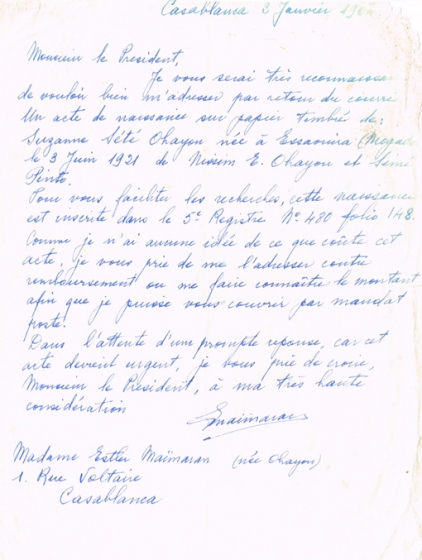 Casablanca 3 Janvier
Monsieur le President,
Je vous serai très reconnaissa
de vouloir bien m'adresser par retour du courri
Un acte de naissance sur papier timbré de:
Suzanne Sété Ohayon née à Essaouira (Mogad
le 3 Juin 1921 de Nissim E. Ohayon et Semi
Pinto.
Pour vous faciliter les recherches, cette naissance
est inscrite dans le 5e Registre No 480 folio 148.
Comme je n'ai aucune idée de ce que coûte cet
acte, je vous prie de me l'adresser contre
remboursement ou me faire connaître le montant
afin que je puisse vous couvrir par mandat
poste.
Dans l'attente d'un prompte reponse, car cet
acte devient urgent, je vous prie de croire,
Monsieur le President, à ma très haute
considération
Emaïmaran
Madame Esther Maïmaran (née Ohayon)
1. Rue Voltaire
Casablanca